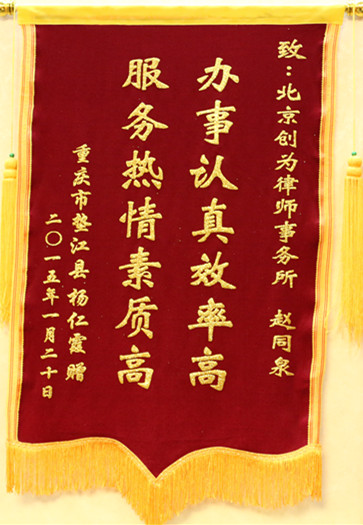 致：北京创为律师事务所 赵同泉
办事认真效率高
服务热情素质高
重庆市垫江县杨仁霞赠
二〇一五年一月二十日